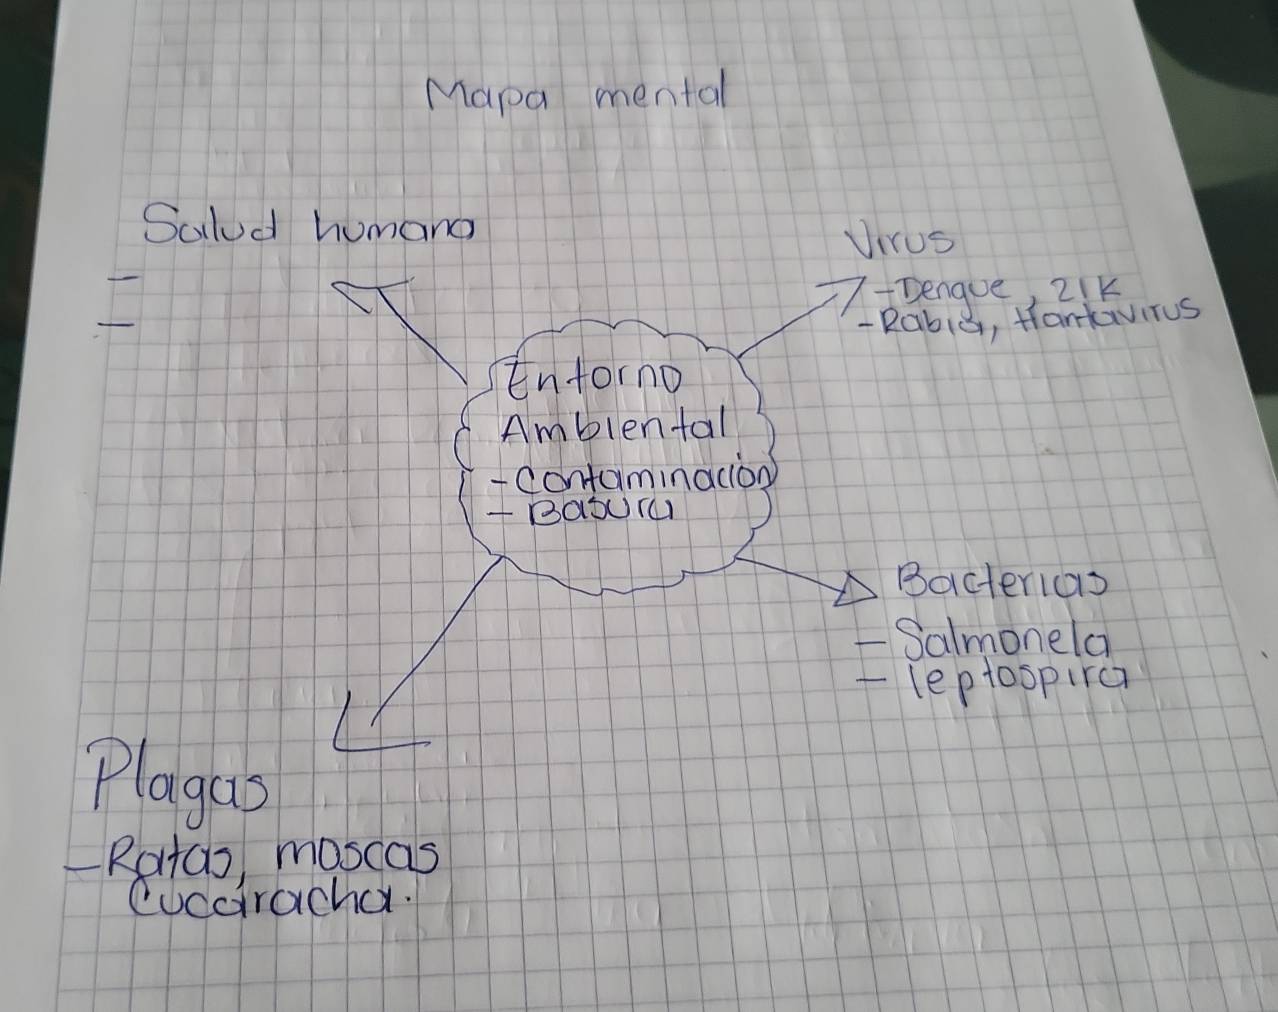 Mapa mental
Salud humana
-
-
Virus
- Dengue, ZIK
- Rabia, Hantavirus
Entorno
Ambiental
- Contaminación
- Basura
Bacterias
- Salmonela
- leptospira
Plagas
- Ratas, moscas
Cucaracha.